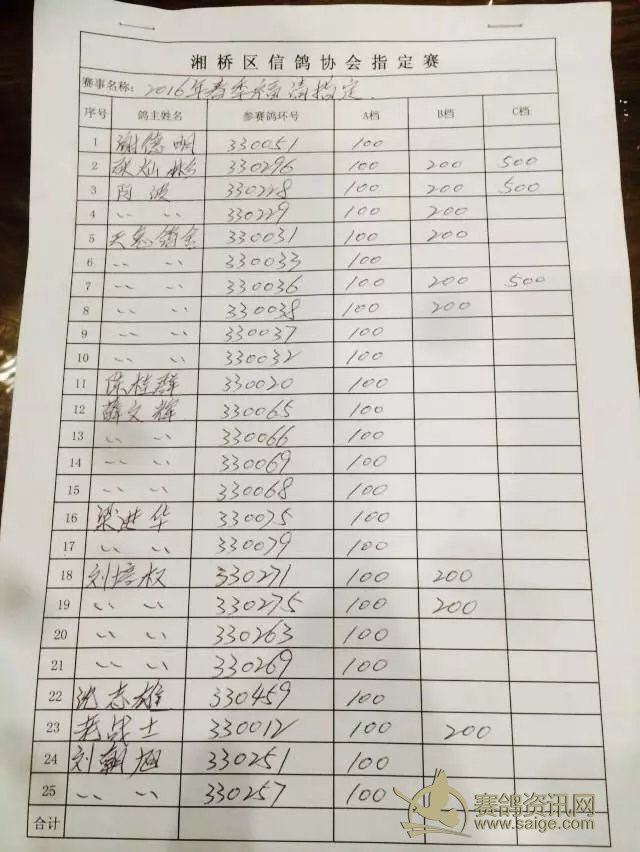 湘桥区信鸽协会指定赛
赛事名称：2016年春季福清指定
序号 鸽主姓名 参赛鸽环号 A档 B档 C档
1 谢德明 330051 100
2 330296 100 200 500
3 阿波 330228 100 200 500
4 〃 〃 330229 100 200
5 330031 100 200
6 〃 〃 330033 100
7 〃 〃 330036 100 200 500
8 〃 〃 330038 100 200
9 〃 〃 330037 100
10 〃 〃 330032 100
11 陈桂群 330020 100
12 薛文辉 330065 100
13 〃 〃 330066 100
14 〃 〃 330069 100
15 〃 〃 330068 100
16 梁进华 330075 100
17 〃 〃 330079 100
18 刘培权 330271 100 200
19 〃 〃 330275 100 200
20 〃 〃 330263 100
21 〃 〃 330269 100
22 沈志雄 330459 100
23 老战士 330012 100 200
24 刘朝旭 330251 100
25 〃 〃 330257 100
合计
赛鸽资讯网
www.saige.com